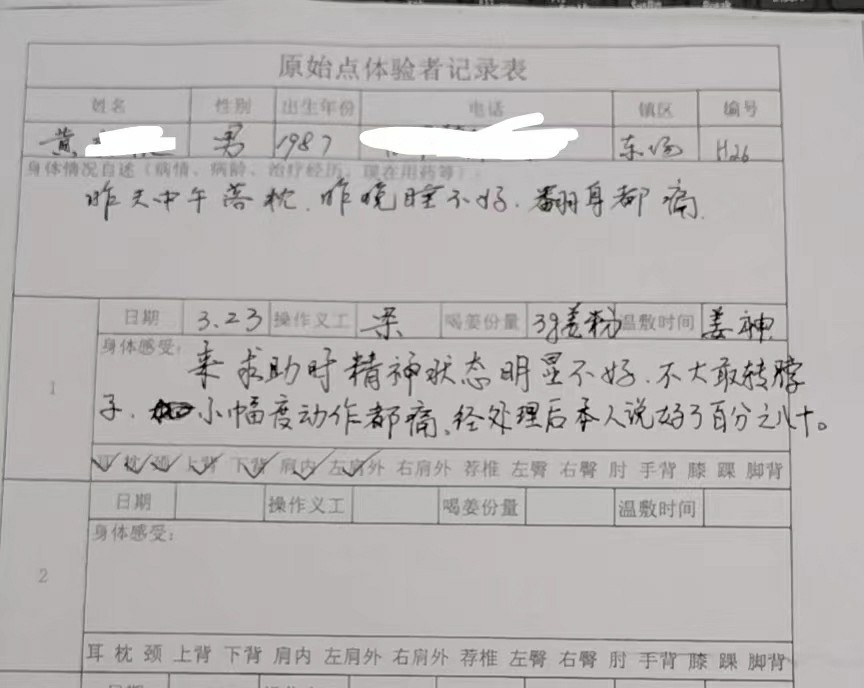 原始点体验者记录表
姓名 性别 出生年份 电话 镇区 编号
黄 男 1987 东 H26
身体情况自述（病情、病龄、治疗经历、现在用药等）：
昨天中午落枕、昨晚睡不好、翻身都痛
1
日期 3.23 操作义工 梁 喝姜份量 3g姜粉 温敷时间 姜神
身体感受：
来求助时精神状态明显不好、不大敢转脖
子、小幅度动作都痛、经处理后本人说好了百分之八十。
耳 枕 颈 上背 下背 肩内 左肩外 右肩外 荐椎 左臀 右臀 肘 手背 膝 踝 脚背
日期 操作义工 喝姜份量 温敷时间
2
身体感受：
耳 枕 颈 上背 下背 肩内 左肩外 右肩外 荐椎 左臀 右臀 肘 手背 膝 踝 脚背